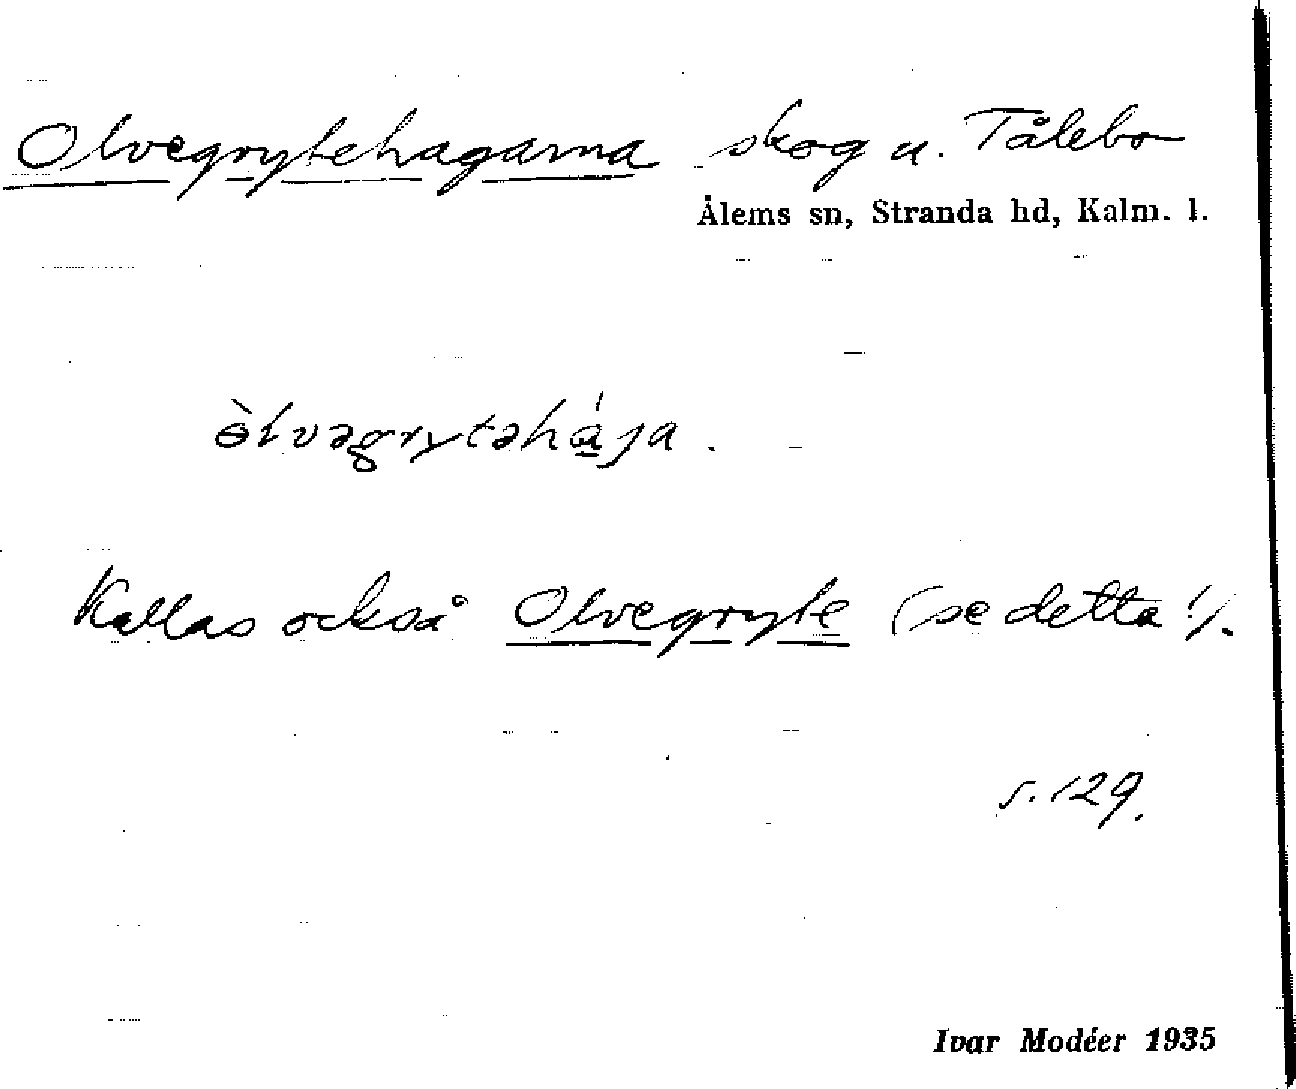 Olvegrytehagarna skog u. Tålebo
Ålems sn, Stranda hd, Kalm. l.
ɵ̀lvəgrytəhája.
Kallas också Olvegryte (se detta!).
s. 129.
Ivar Modéer 1935